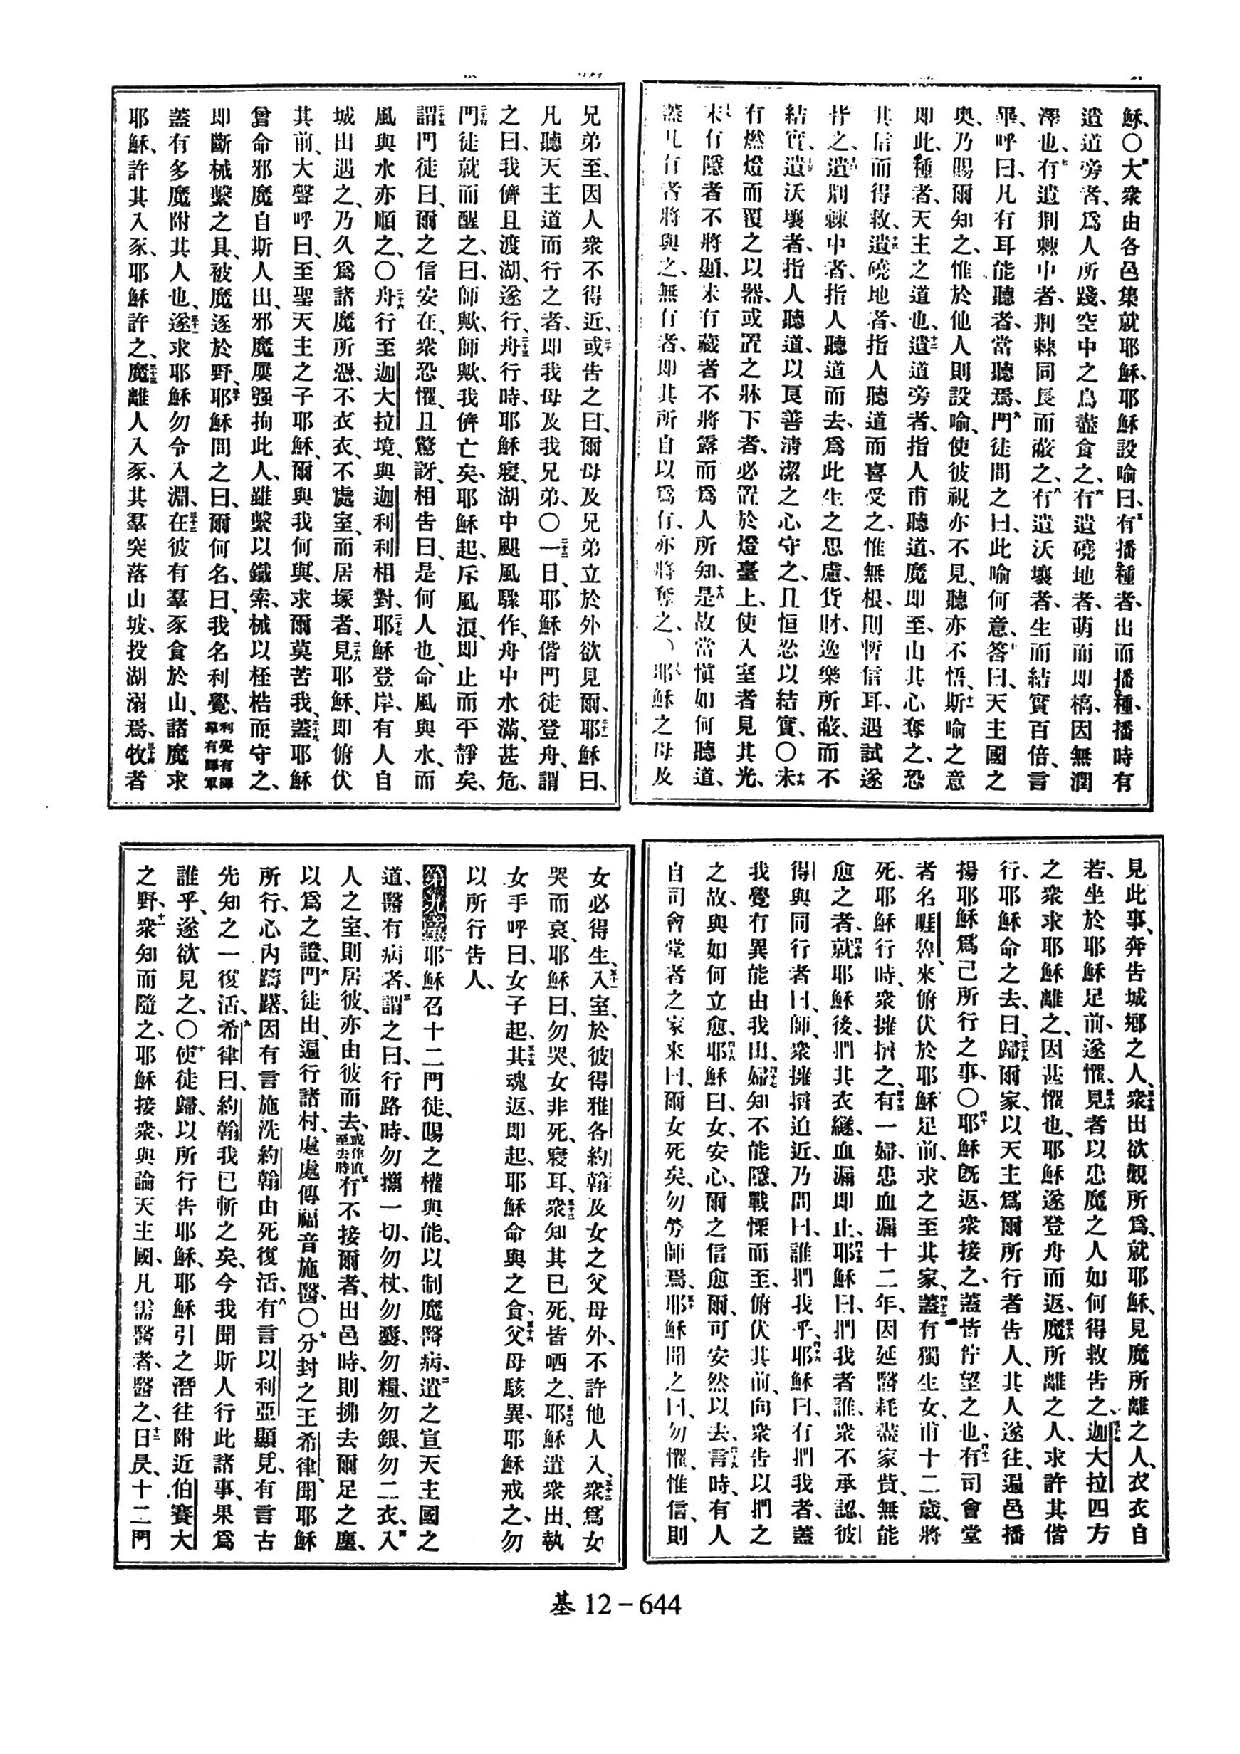 穌、〇大衆由各邑集就耶穌、耶穌設喻曰、有播種者、出而播種、播時有
遺道旁者、爲人所踐、空中之鳥盡食之、有遺磽地者、萌而即槁、因無潤
澤也、有遺荆棘中者、荆棘同長而蔽之、有遺沃壤者、生而結實百倍、言
畢、呼曰、凡有耳能聽者、當聽焉、門徒問之曰、此喻何意、答曰、天主國之
奥、乃賜爾知之、惟於他人則設喻、使彼視亦不見、聽亦不悟、斯喻之意
即此、種者、天主之道也、遺道旁者、指人甫聽道、魔即至、由其心奪之、恐
其信而得救、遺磽地者、指人聽道而喜受之、惟無根、則暫信耳、遇試遂
背之、遺荆棘中者、指人聽道而去、爲此生之思慮、貨財、逸樂所蔽、而不
結實、遺沃壤者、指人聽道、以良善清潔之心守之、且恒忍以結實、〇未
有燃燈而覆之以器、或置之牀下者、必置於燈臺上、使入室者見其光、
未有隱者不將顯、未有藏者不將露而爲人所知、是故當愼如何聽道、
蓋凡有者將與之、無有者、即其所自以爲有、亦將奪之、〇耶穌之母及
兄弟至、因人衆不得近、或告之曰、爾母及兄弟立於外、欲見爾、耶穌曰、
凡聽天主道而行之者、即我母及我兄弟、〇一日、耶穌偕門徒登舟、謂
之曰、我儕且渡湖、遂行、舟行時、耶穌寢、湖中颶風驟作、舟中水滿、甚危、
門徒就而醒之、曰、師歟、師歟、我儕亡矣、耶穌起、斥風浪、即止而平靜矣、
謂門徒曰、爾之信安在、衆恐懼、且驚訝、相告曰、是何人也、命風與水、而
風與水亦順之、〇舟行至迦大拉境、與迦利利相對、耶穌登岸、有人自
城出遇之、乃久爲諸魔所憑、不衣衣、不處室、而居塚者、見耶穌、即俯伏
其前、大聲呼曰、至聖天主之子耶穌、爾與我何與、求爾莫苦我、蓋耶穌
曾命邪魔自斯人出、邪魔屢强拘此人、雖繫以鐵索、械以桎梏而守之、
即斷械繫之具、被魔逐於野、耶穌問之曰、爾何名、曰、我名利覺、利覺有譯羣有譯軍
蓋有多魔附其人也、遂求耶穌勿令入淵、在彼有羣豕食於山、諸魔求
耶穌、許其入豕、耶穌許之、魔離人入豕、其羣突落山坡、投湖溺焉、牧者
見此事、奔告城鄉之人、衆出欲觀所爲、就耶穌、見魔所離之人、衣衣自
若、坐於耶穌足前、遂懼、見者以患魔之人如何得救告之、迦大拉四方
之衆求耶穌離之、因甚懼也、耶穌遂登舟而返、魔所離之人、求許其偕
行、耶穌命之去、曰、歸爾家、以天主爲爾所行者告人、其人遂往、遍邑播
揚耶穌爲己所行之事、〇耶穌旣返、衆接之、蓋皆佇望之也、有司會堂
者名睚魯、來俯伏於耶穌足前、求之至其家、蓋有獨生女、甫十二歲、將
死、耶穌行時、衆擁擠之、有一婦患血漏十二年、因延醫耗盡家貲、無能
愈之者、就耶穌後、捫其衣䍁、血漏即止、耶穌曰、捫我者誰、衆不承認、彼
得與同行者曰、師、衆擁擠迫近、乃問曰、誰捫我乎、耶穌曰、有捫我者、蓋
我覺有異能由我出、婦知不能隱、戰慄而至、俯伏其前、向衆告以捫之
之故、與如何立愈、耶穌曰、女、安心、爾之信愈爾、可安然以去、言時、有人
自司會堂者之家來曰、爾女死矣、勿勞師焉、耶穌聞之曰、勿懼、惟信、則
女必得生、入室、於彼得雅各約翰及女之父母外、不許他人入、衆爲女
哭而哀、耶穌曰、勿哭、女非死、寢耳、衆知其已死、皆哂之、耶穌遣衆出、執
女手呼曰、女子起、其魂返、即起、耶穌命與之食、父母駭異、耶穌戒之、勿
以所行告人、
第九章 耶穌召十二門徒、賜之權與能、以制魔醫病、遣之宣天主國之
道、醫有病者、謂之曰、行路時、勿攜一切、勿杖、勿囊、勿糧、勿銀、勿二衣、入
人之室、則居彼、亦由彼而去、或作直至去時有不接爾者、出邑時、則拂去爾足之塵、
以爲之證、門徒出、遍行諸村、處處傳福音施醫、〇分封之王希律、聞耶穌
所行、心內躊躇、因有言施洗約翰由死復活、有言以利亞顯見、有言古
先知之一復活、希律曰、約翰我已斬之矣、今我聞斯人行此諸事、果爲
誰乎、遂欲見之、〇使徒歸、以所行告耶穌、耶穌引之潛往附近伯賽大
之野、衆知而隨之、耶穌接衆、與論天主國、凡需醫者、醫之、日昃、十二門
基 12－644